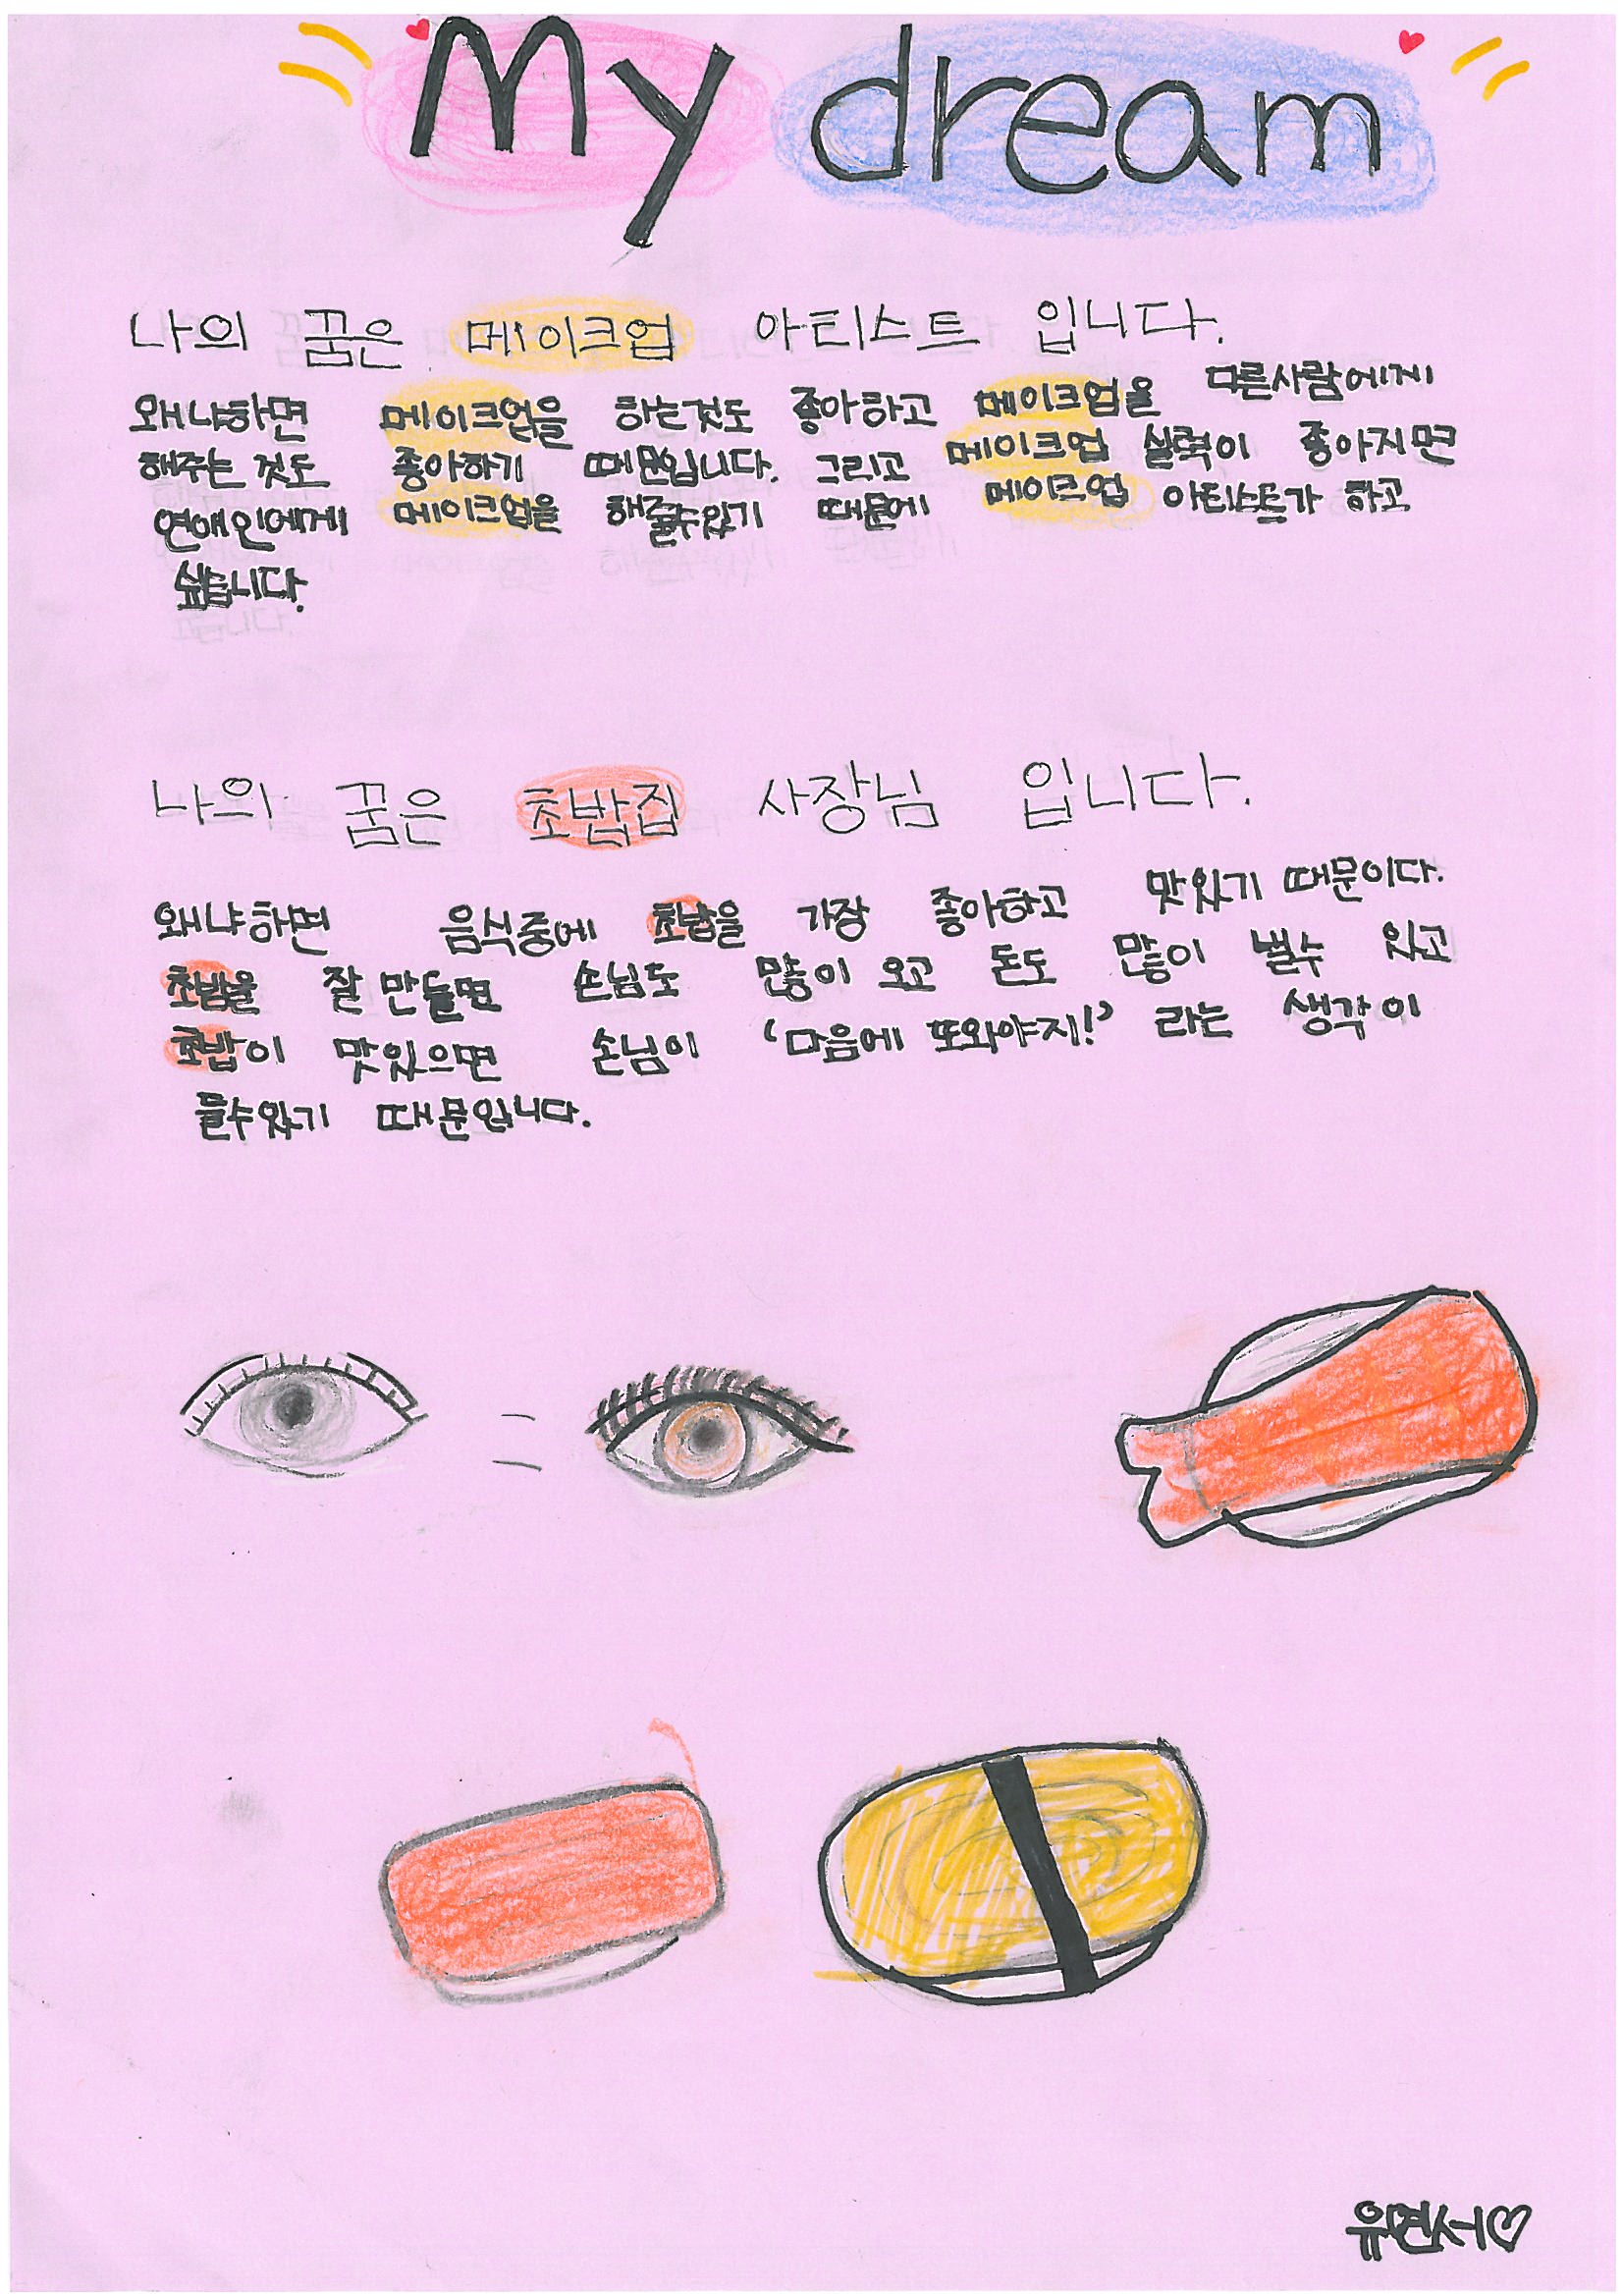 My dream
나의 꿈은 메이크업 아티스트 입니다.
왜냐하면 메이크업을 하는것도 좋아하고 메이크업을 다른사람에게
해주는 것도 좋아하기 때문입니다. 그리고 메이크업 실력이 좋아지면
연애인에게 메이크업을 해줄수있기 때문에 메이크업 아티스트가 하고
싶습니다.
나의 꿈은 초밥집 사장님 입니다.
왜냐하면 음식중에 초밥을 가장 좋아하고 맛있기 때문이다.
초밥을 잘 만들면 손님도 많이 오고 돈도 많이 벌수 있고
초밥이 맛있으면 손님이 '다음에 또와야지!' 라는 생각이
들수있기 때문입니다.
유현서♡